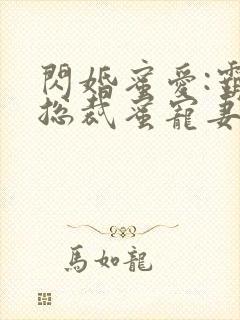 閃婚蜜愛:
総裁蜜寵妻
馬如龍